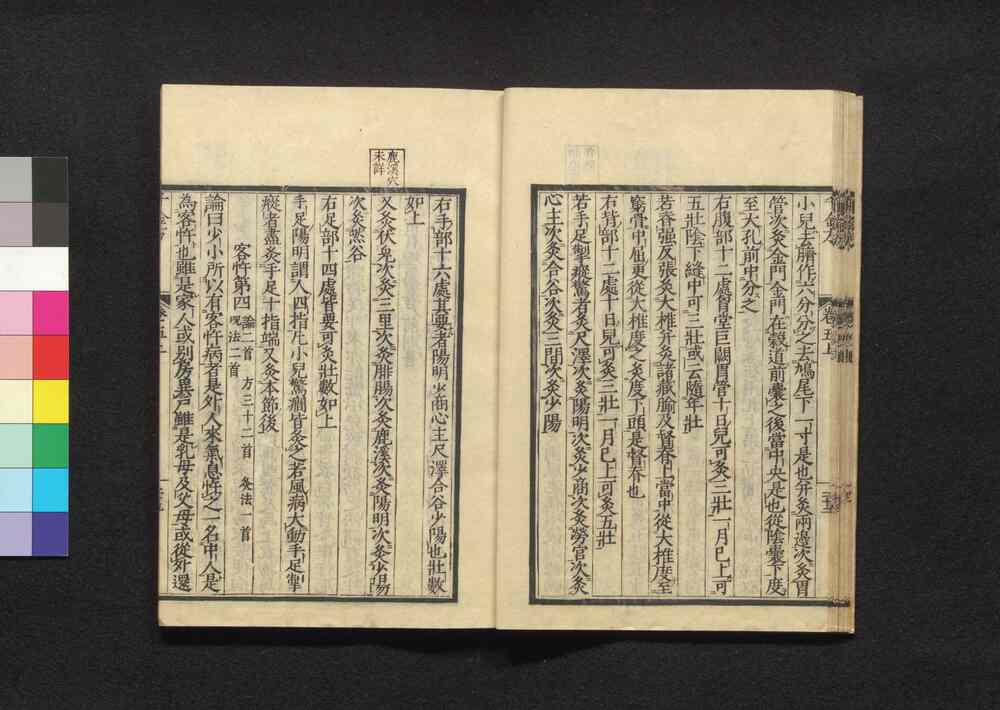 小兒去臍作六分分之去鳩尾下一寸是也并灸兩邊次灸胃
管次灸金門金門在穀道前囊之後當中央是也從陰囊下度
至大孔前中分之
右腹部十二處胃堂巨闕胃管十日兒可灸三壯一月已上可
五壯陰下縫中可三壯或云隨年壯
若脊強反張灸大椎并灸諸藏腧及督脊上當中從大椎度至
窮骨中屈更從大椎度之灸度下頭是督脊也
右背部十二處十日兒可灸三壯一月已上可灸五壯
若手足掣瘲驚者灸尺澤次灸陽明次灸少商次灸勞宫次灸
心主次灸合谷次灸三間次灸少陽
卷五上
右手部十六處其要者陽明少商心主尺澤合谷少陽也壯數
如上
又灸伏兔次灸三里次灸腓腸次灸鹿溪次灸陽明次灸少陽
次灸然谷
鹿溪穴
未詳
右足部十四處皆要可灸壯數如上
手足陽明謂人四指凡小兒驚癎皆灸之若風病大動手足掣
瘲者盡灸手足十指端又灸本節後
客忤第四
論二首 方三十二首 灸法一首
呪法二首
論曰少小所以有客忤病者是外人來氣息忤之一名中人是
為客忤也雖是家人或别房異戸雖是乳母及父母或從外還